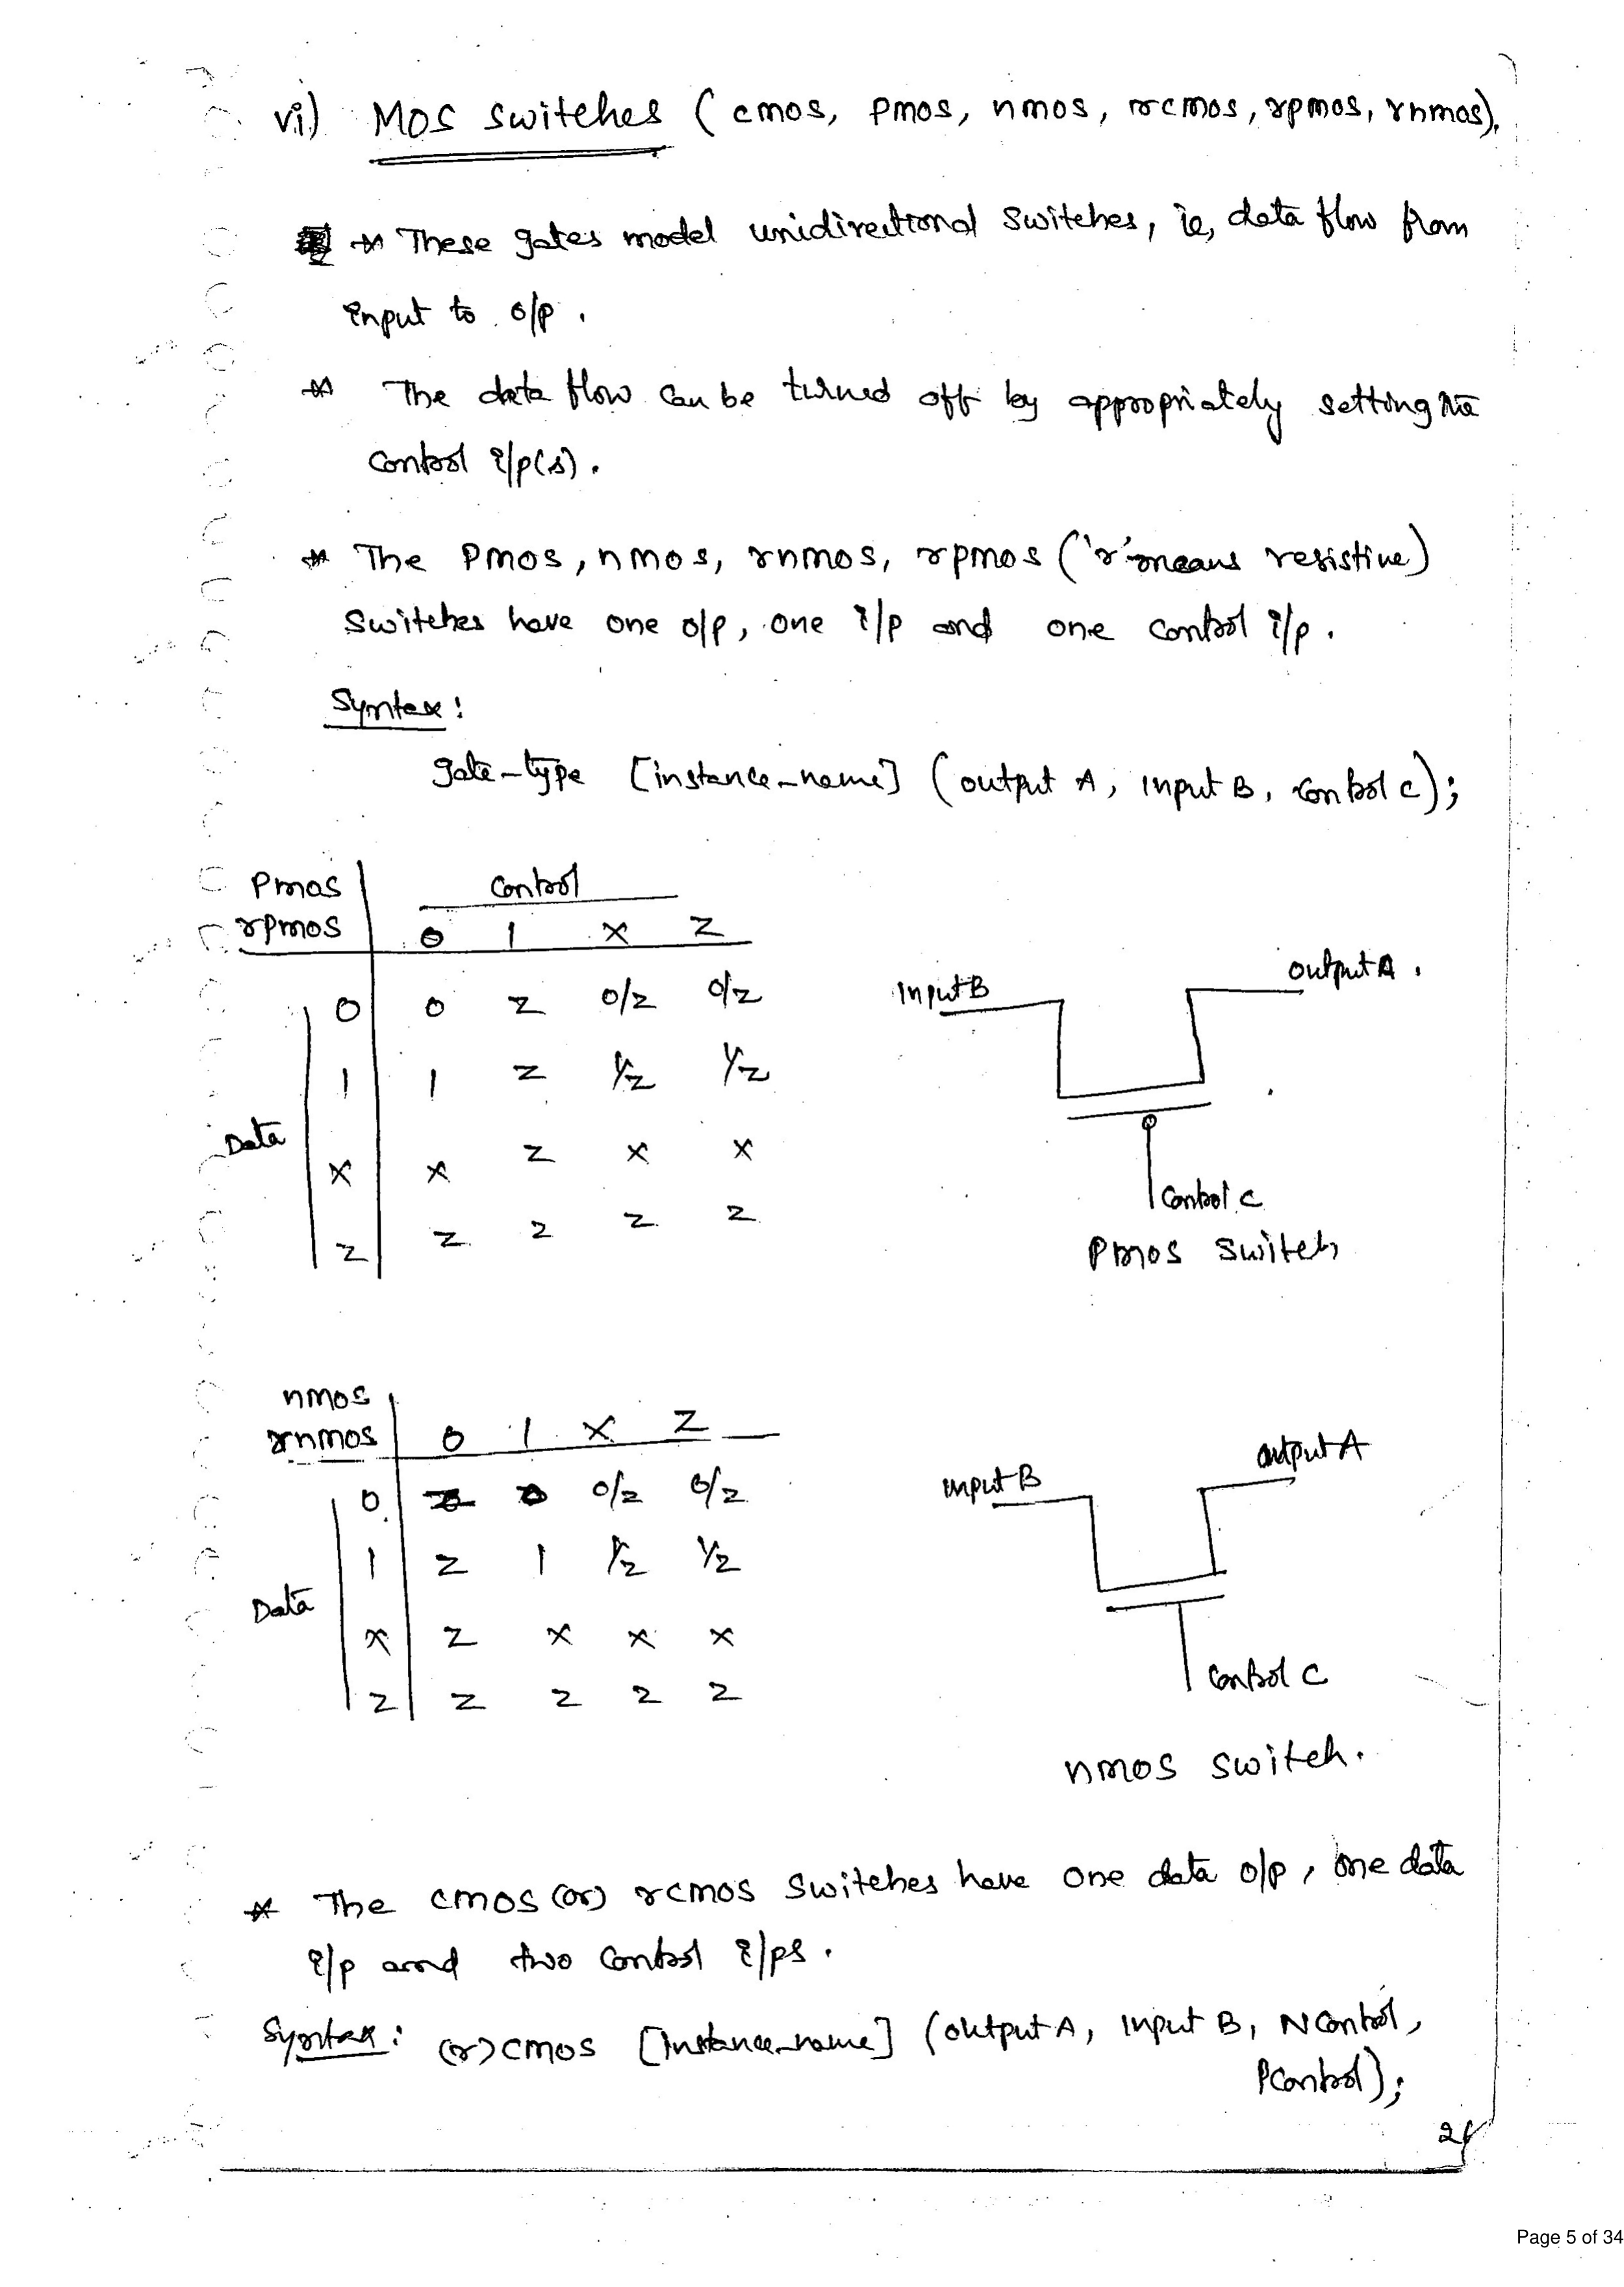 vi) MOS switches ( cmos, pmos, nmos, rcmos, rpmos, rnmos).
* These gates model unidirectional switches, ie, data flow from
input to o/p .
* The data flow can be turned off by appropriately setting the
control i/p(s) .
* The Pmos, nmos, rnmos, rpmos ('r' means resistive)
switches have one o/p, one i/p and one control i/p .
Syntax :
gate-type [instance_name] (output A, input B, control C);
Pmos
rpmos
Control
0 1 x z
0 0 z 0/z 0/z
1 1 z 1/z 1/z
Data
x x z x x
z z z z z
Input B
output A .
Control C
Pmos switch
nmos
rnmos 0 1 x z
0 z 0 0/z 0/z
1 z 1 1/z 1/z
Data
x z x x x
z z z z z
input B
output A
Control C
nmos switch.
* The cmos (or) rcmos switches have one data o/p, one data
i/p and two control i/ps .
Syntax : (r)cmos [instance_name] (output A, input B, NControl,
PControl);
Page 5 of 34